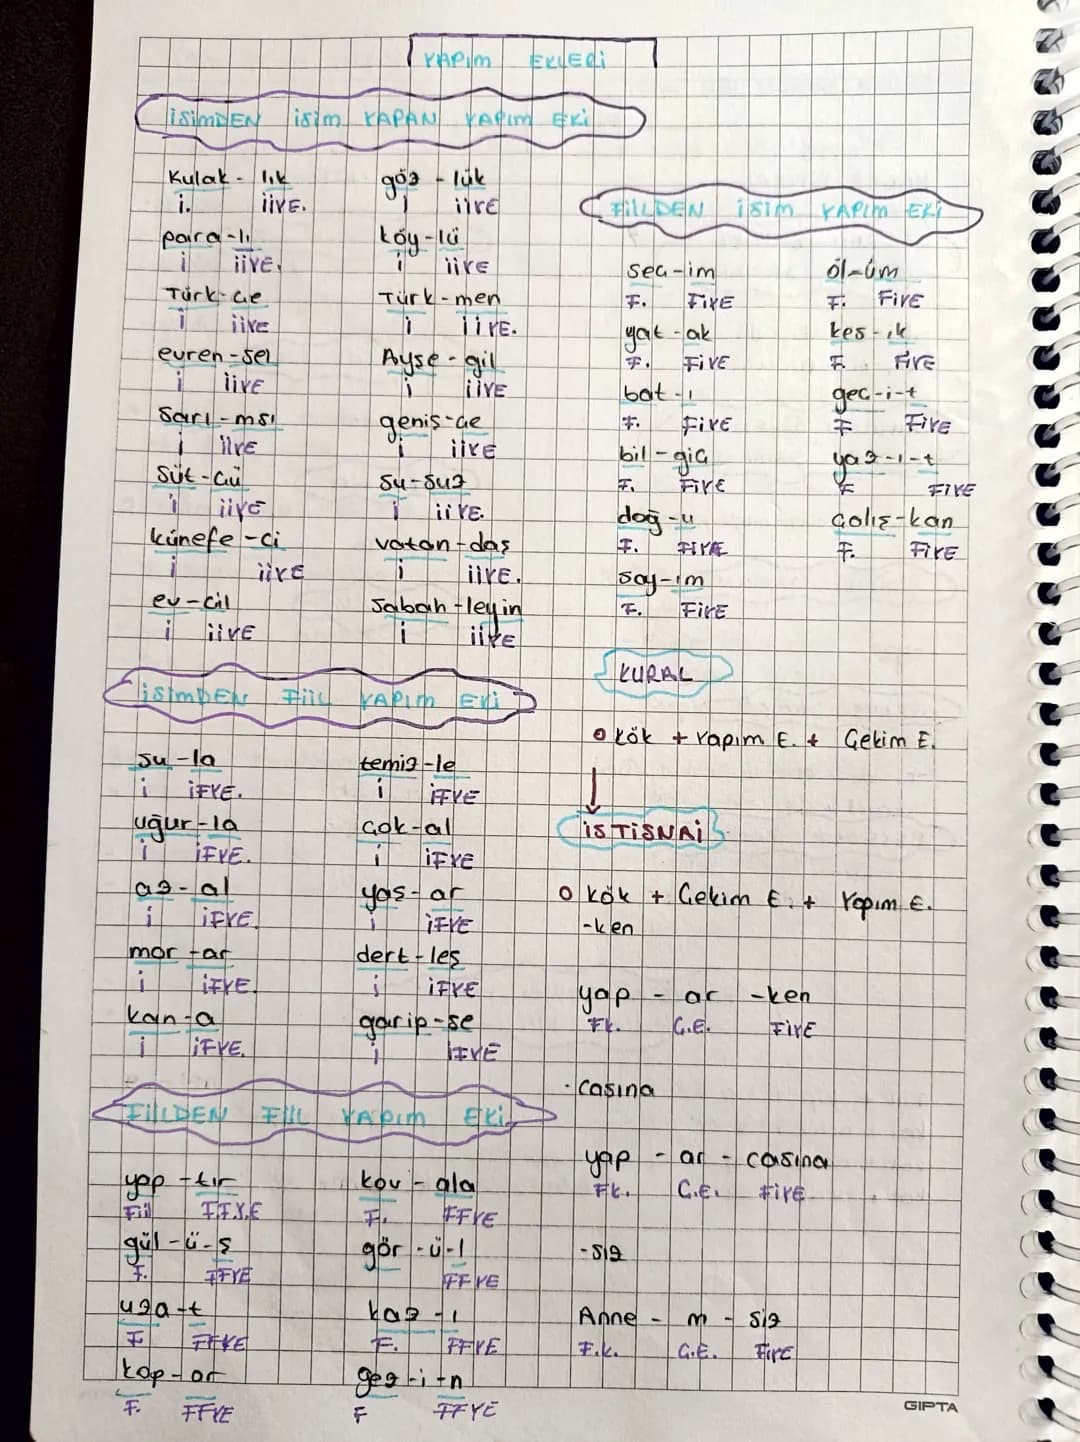 YAPIM EKLERİ
İSİMDEN İSİM YAPAN YAPIM EKİ
Kulak - lık
i. iiYE.
göz - lük
i iiYE
para - lı
i iiYE.
köy - lü
i iiYE
Türk - çe
i iiYE
Türk - men
i iiYE.
evren - sel
i iiYE
Ayşe - gil
i iiYE
sarı - msı
i iiYE
geniş - çe
i iiYE
süt - çü
i iiYE
su - suz
i iiYE.
künefe - ci
i iiYE
vatan - daş
i iiYE.
ev - cil
i iiYE
sabah - leyin
i iiYE
FİİLDEN İSİM YAPIM EKİ
seç - im
F. FİYE
öl - üm
F. FİYE
yat - ak
F. FİYE
kes - ik
F. FİYE
bat - ı
F. FİYE
geç - i - t
F FİYE
bil - giç
F. FİYE
yaz - ı - t
F FİYE
doğ - u
F. FİYE
çalış - kan
F. FİYE
say - ım
F. FİYE
İSİMDEN FİİL YAPIM EKİ
su - la
i İFYE.
temiz - le
i İFYE
uğur - la
i İFYE.
çok - al
i İFYE
az - al
i İFYE.
yaş - ar
i İFYE
mor - ar
i İFYE.
dert - leş
i İFYE
kan - a
i İFYE.
garip - se
i İFYE
KURAL
kök + Yapım E. + Çekim E.
İSTİSNAİ
kök + Çekim E. + Yapım E.
-ken
yap - ar - ken
Fk. Ç.E. FİYE
- casına
yap - ar - casına
Fk. Ç.E. FİYE
- siz
Anne - m - siz
F.k. Ç.E. FİYE
FİİLDEN FİİL YAPIM EKİ
yap - tır
Fiil F.F.Y.E
kov - ala
F. FFYE
gül - ü - ş
F. FFYE
gör - ü - l
FFYE
uza - t
F FFYE
kaz - ı
F. FFYE
kop - ar
F. FFYE
gez - i - n
F FFYE
GIPTA